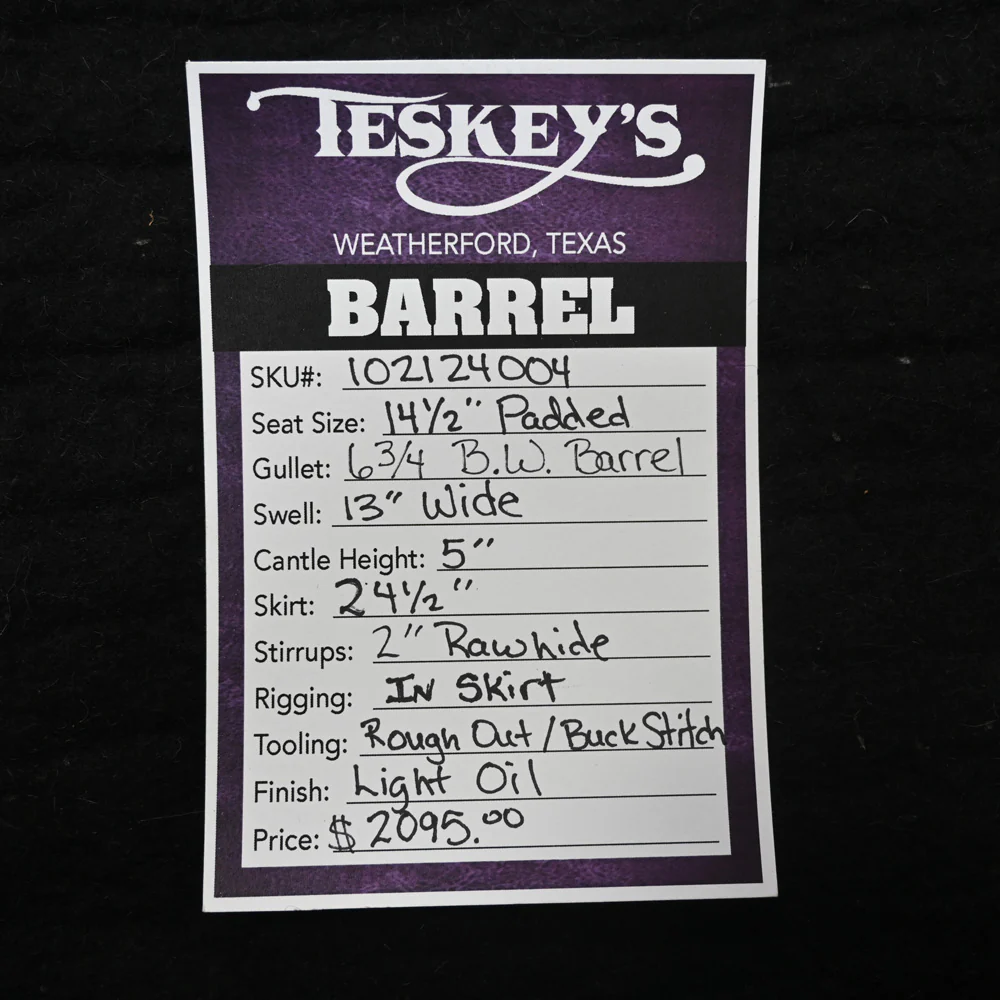 TESKEY'S
WEATHERFORD, TEXAS
BARREL
SKU#: 102124004
Seat Size: 14½" Padded
Gullet: 6¾ B.W. Barrel
Swell: 13" Wide
Cantle Height: 5"
Skirt: 24½"
Stirrups: 2" Rawhide
Rigging: IN Skirt
Tooling: Rough Out / Buck Stitch
Finish: Light Oil
Price: $2095.00